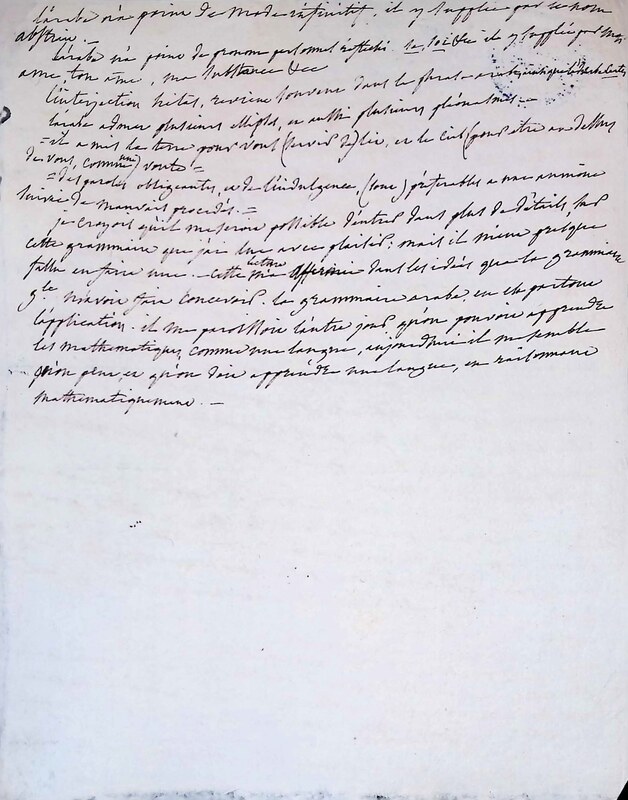 l'arabe n'a point de mode infinitif, il y supplée par le nom
abstrait. —
l'arabe n'a point de pronom personnel réfléchi se, soi &c il y supplée par mon
ame, ton ame, ma substance &cc
l'interjection hélas, revient souvent dans le
l'arabe admet plusieurs ellipses, et aussi plusieurs pléonasmes. —
= il a mis la terre pour vous (servir de) lit, et le ciel (pour être au dessus
de vous, comme une) voute =
= des paroles obligeantes, et de l'indulgence, (sont) préférables a une aumone
suivie de mauvais procédés. =
je croyois qu'il me seroit possible d'entrer dans plus de détails, sur
cette grammaire que j'ai lue avec plaisir; mais il m'eut presque
fallu en faire une. — cette lecture m'a affermie dans les idées que la grammaire
gle m'avoit fait concevoir. la grammaire arabe en est partout
l'application. il me paroissoit l'autre jour qu'on pouvoit apprendre
les mathématiques comme une langue, aujourdhui il me semble
qu'on peut, et qu'on doit apprendre une langue, en raisonnant
mathematiquement. —